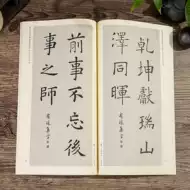 乾坤獻瑞山
澤同暉
前事不忘後
事之師